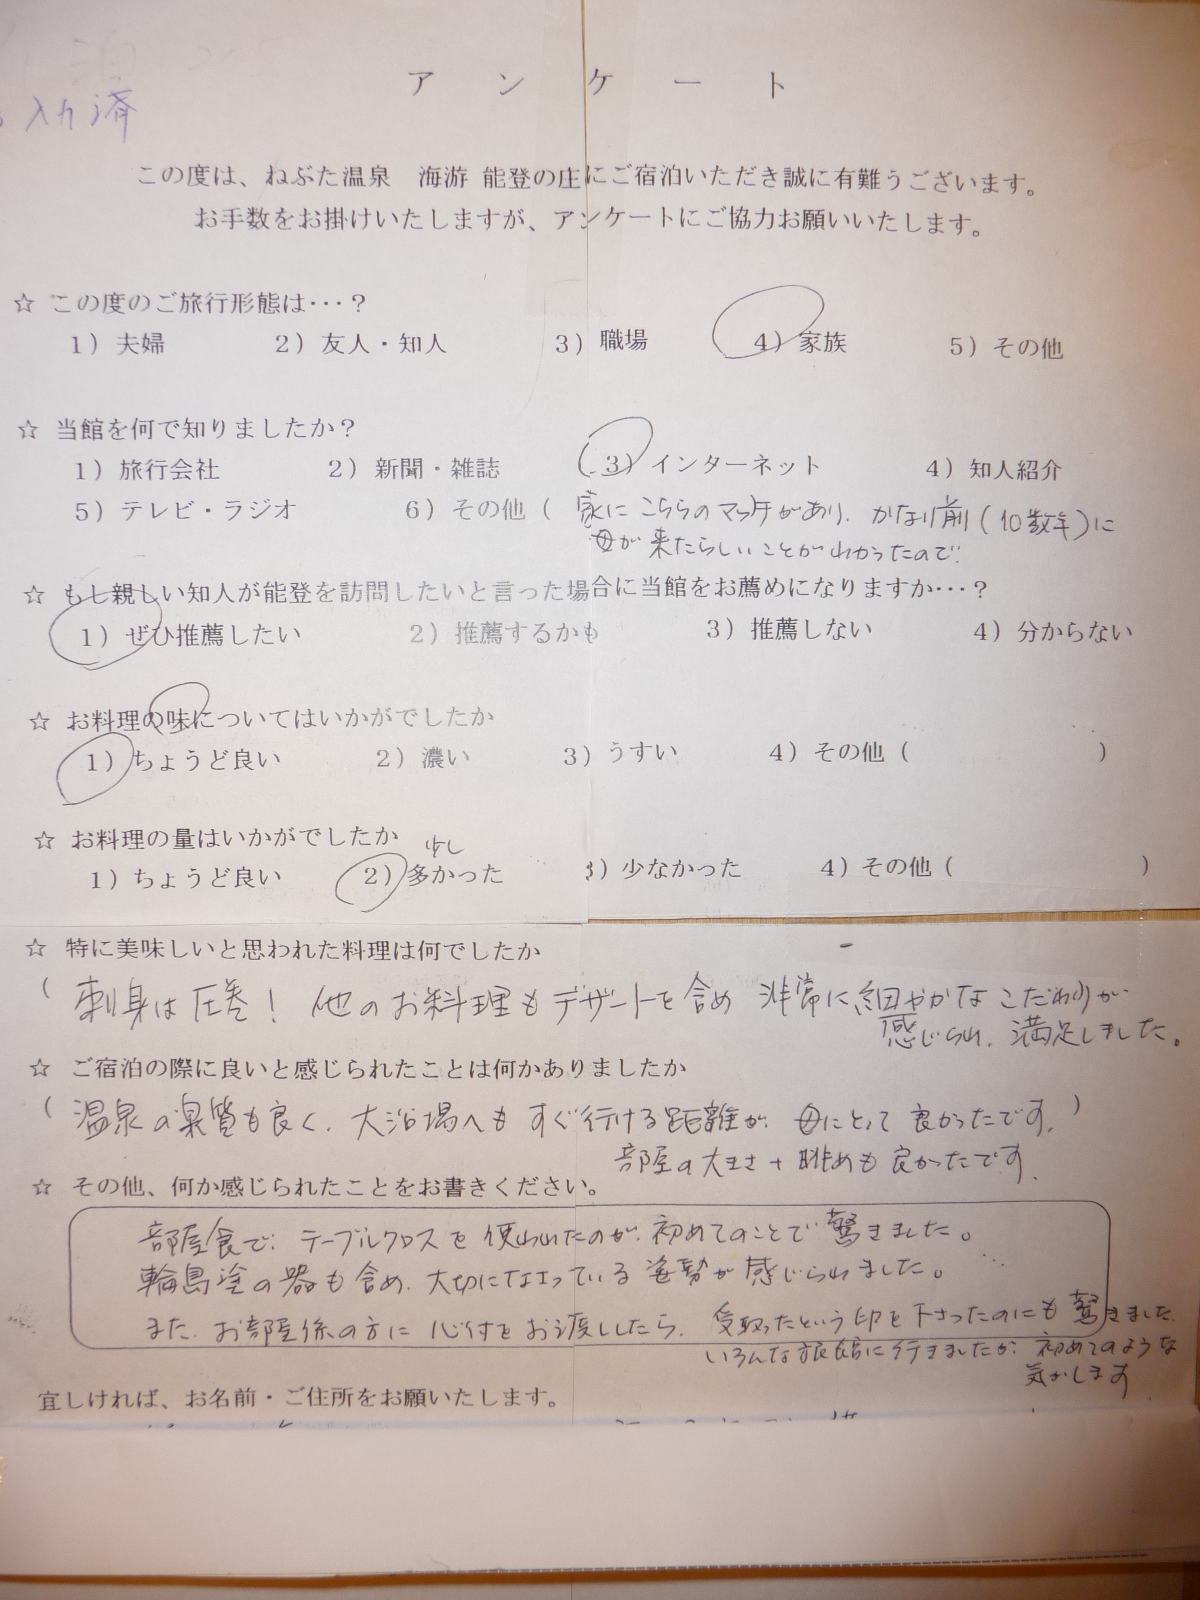 入力済
アンケート
この度は、ねぶた温泉 海游 能登の庄にご宿泊いただき誠に有難うございます。
お手数をお掛けいたしますが、アンケートにご協力お願いいたします。
☆ この度のご旅行形態は・・・？
1）夫婦 2）友人・知人 3）職場 4）家族 5）その他
☆ 当館を何で知りましたか？
1）旅行会社 2）新聞・雑誌 3）インターネット 4）知人紹介
5）テレビ・ラジオ 6）その他（ 家にこちらのマッチがあり、かなり前（10数年）に
母が来たらしいことがわかったので
☆ もし親しい知人が能登を訪問したいと言った場合に当館をお薦めになりますか・・・？
1）ぜひ推薦したい 2）推薦するかも 3）推薦しない 4）分からない
☆ お料理の味についてはいかがでしたか
1）ちょうど良い 2）濃い 3）うすい 4）その他（ ）
☆ お料理の量はいかがでしたか
少し
1）ちょうど良い 2）多かった 3）少なかった 4）その他（ ）
☆ 特に美味しいと思われた料理は何でしたか
（ 刺身は圧巻！ 他のお料理もデザートを含め 非常に細やかなこだわりが
感じられ、満足しました。
☆ ご宿泊の際に良いと感じられたことは何かありましたか
（ 温泉の泉質も良く、大浴場へもすぐ行ける距離が、母にとって良かったです。）
部屋の大きさ＋眺めも良かったです。
☆ その他、何か感じられたことをお書きください。
部屋食で、テーブルクロスを使われたのが、初めてのことで驚きました。
輪島塗の器も含め、大切になさっている姿勢が感じられました。
また、お部屋係の方に心付をお渡ししたら、受取ったという印を下さったのにも驚きました。
いろんな旅館に行きましたが、初めてのような
気がします
宜しければ、お名前・ご住所をお願いたします。